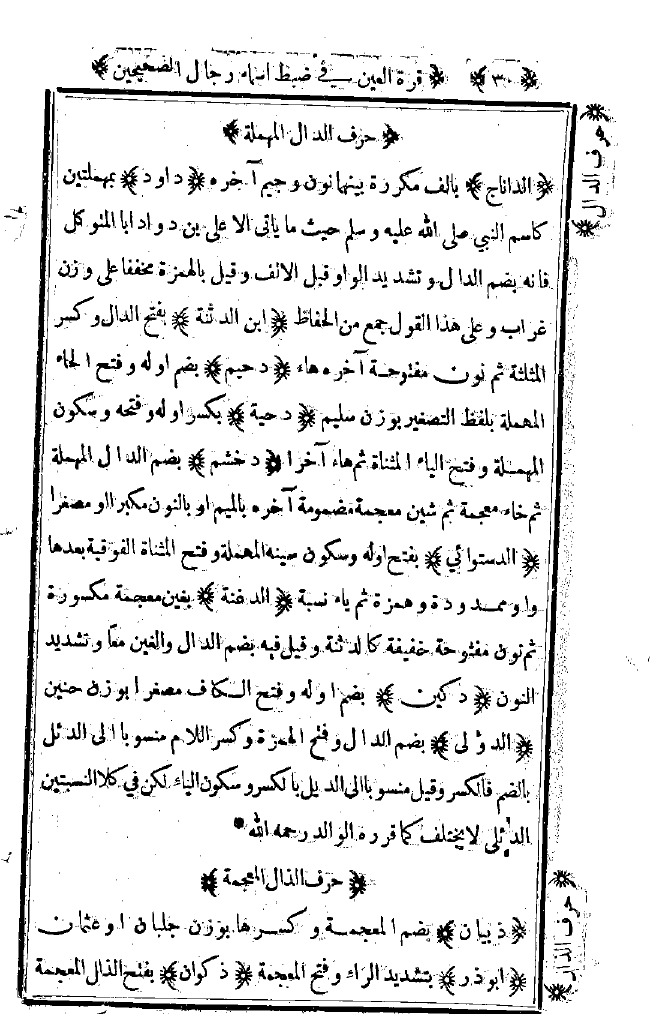 ﴿ ٣٠ ﴾ ﴿ قرة العين في ضبط اسماء رجال الصحيحين ﴾
﴿ حرف الدال المهملة ﴾
﴿ الداناج ﴾ بالف مكررة بينهما نون وجيم آخره ﴿ داود ﴾ بمهملتين
كاسم النبي صلى الله عليه وسلم حيث ما ياتى الا على بن دواد ابا المتوكل
فانه بضم الدال وتشديد الواو قبل الالف وقيل بالهمزة مخففا على وزن
غراب وعلى هذا القول جمع من الحفاظ ﴿ ابن الدثنة ﴾ بفتح الدال وكسر
المثلثة ثم نون مفتوحة آخره هاء ﴿ دحيم ﴾ بضم اوله وفتح الحاء
المهملة بلفظ التصغير بوزن سليم ﴿ دحية ﴾ بكسر اوله وفتحه وسكون
المهملة وفتح الياء المثناة ثم هاء آخرا ﴿ دخشم ﴾ بضم الدال المهملة
ثم خاء معجمة ثم شين معجمة مضمومة آخره بالميم او بالنون مكبرا او مصغرا
﴿ الدستوائي ﴾ بفتح اوله وسكون سينه المهملة وفتح المثناة الفوقية بعدها
واو ممدودة وهمزة ثم ياء نسبة ﴿ الدغنة ﴾ بغين معجمة مكسورة
ثم نون مفتوحة خفيفة كالدثنة وقيل فيه بضم الدال والغين معا وتشديد
النون ﴿ دكين ﴾ بضم اوله وفتح الكاف مصغرا بوزن حنين
﴿ الدولى ﴾ بضم الدال وفتح الهمزة وكسر اللام منسوبا الى الدئل
بالضم فالكسر وقيل منسوبا الى الديل بالكسر وسكون الياء لكن في كلا النسبتين
الدئلى لا يختلف كما قرره الوالد رحمه الله *
﴿ حرف الذال المعجمة ﴾
﴿ ذبيان ﴾ بضم المعجمة وكسرها بوزن جلبان او عثمان
﴿ ابوذر ﴾ بتشديد الراء وفتح المعجمة ﴿ ذكوان ﴾ بفتح الذال المعجمة
حرف الدال
حرف الذال